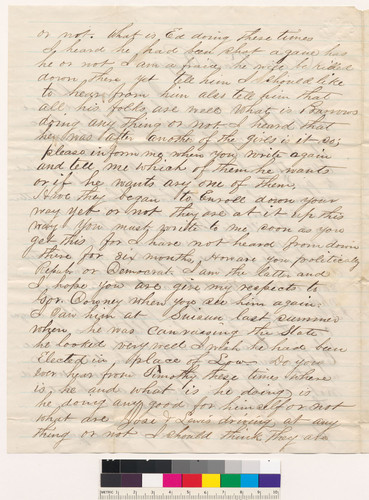 or not. What is Ed doing these times
I heard he had been shot again has
he or not I am afraid he will be killed
down there yet tell him I should like
to hear from him also tell him that
all his folks are well What is
doing any thing or not I heard that
he was after another of the girls is it so;
please inform me when you write again
and tell me which of them he wants
or if he wants any one of them.
Have they began to Enroll down your
way yet or not they are at it up this
way You must write to me soon as you
get this for I have not heard from down
there for six months, How are you politically
Repub or Democrat I am the latter and
I hope you are give my respects to
Gov. Downey when you see him again.
I saw him at Suisun last summer
when he was canvassing the State
he looked very well I wish he had been
Elected in place of Low. Do you
ever hear from Timothy these times where
is he and what is he doing is
he doing any good for himself or not
what are Jose & Lewis driving at any
thing or not I should think they